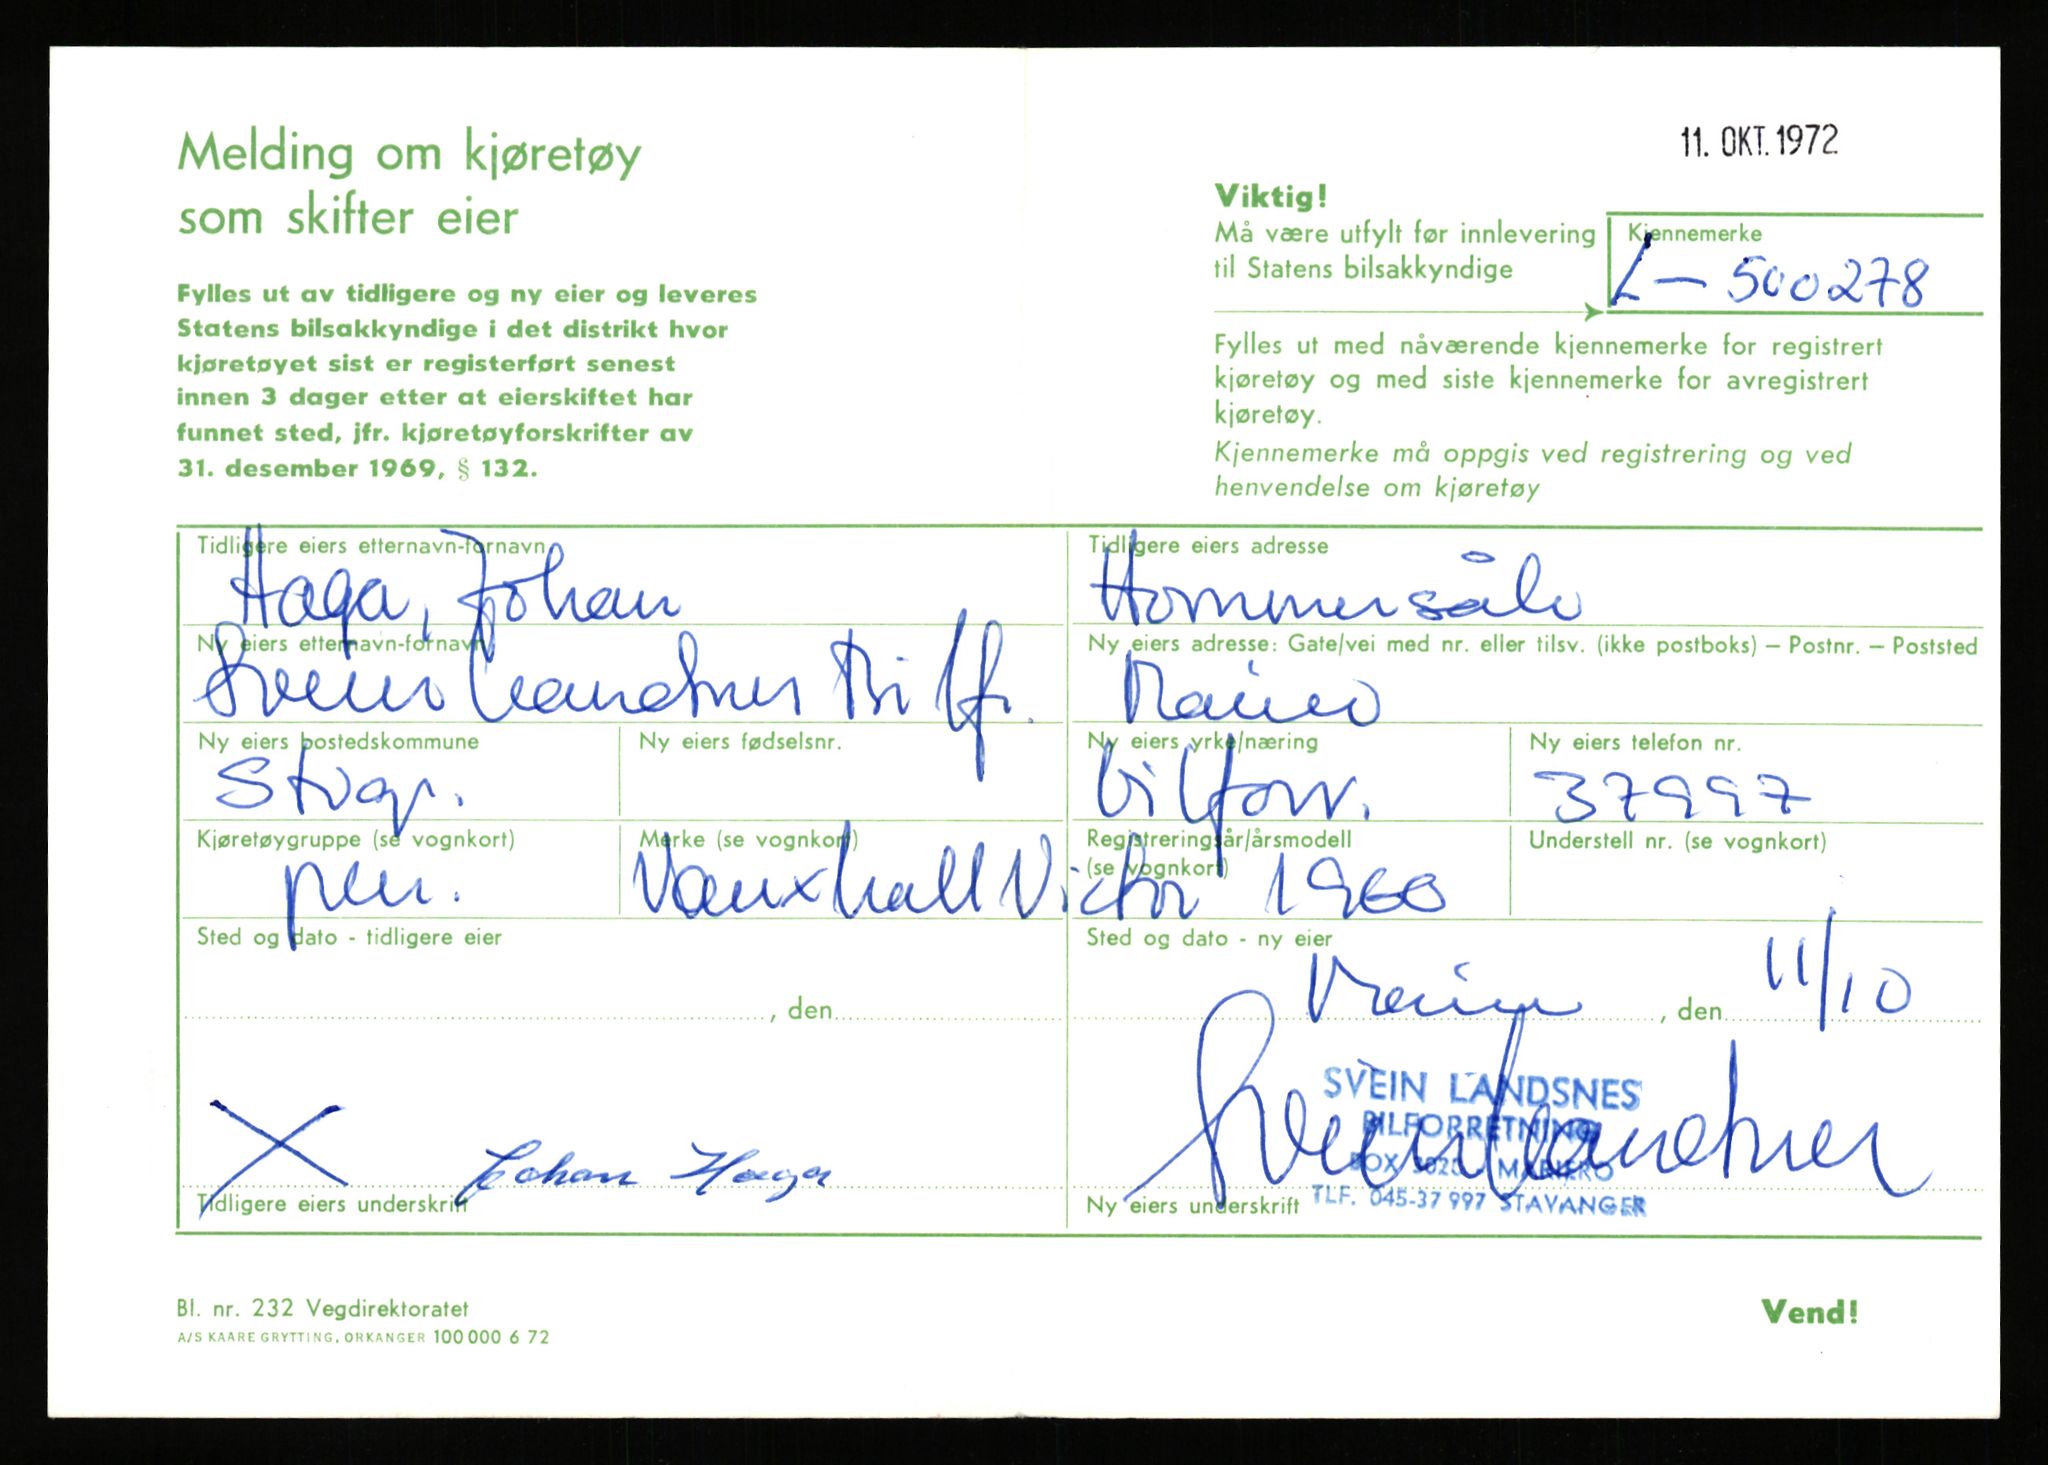 Melding om kjøretøy
som skifter eier
Fylles ut av tidligere og ny eier og leveres
Statens bilsakkyndige i det distrikt hvor
kjøretøyet sist er registerført senest
innen 3 dager etter at eierskiftet har
funnet sted, jfr. kjøretøyforskrifter av
31. desember 1969, § 132.
11. OKT. 1972
Viktig!
Må være utfylt før innlevering
til Statens bilsakkyndige
Kjennemerke
L - 500278
Fylles ut med nåværende kjennemerke for registrert
kjøretøy og med siste kjennemerke for avregistrert
kjøretøy.
Kjennemerke må oppgis ved registrering og ved
henvendelse om kjøretøy
Tidligere eiers etternavn-fornavn
Haga, Johan
Tidligere eiers adresse
Hommersåk
Ny eiers etternavn-fornavn
Svein Landsnes Bilf.
Ny eiers adresse: Gate/vei med nr. eller tilsv. (ikke postboks) – Postnr. – Poststed
Ny eiers bostedskommune
Stvgr.
Ny eiers fødselsnr.
Ny eiers yrke/næring
bilforr.
Ny eiers telefon nr.
37997
Kjøretøygruppe (se vognkort)
per.
Merke (se vognkort)
Vauxhall Victor
Registreringsår/årsmodell
(se vognkort)
1960
Understell nr. (se vognkort)
Sted og dato - tidligere eier
, den
Sted og dato - ny eier
, den 11/10
Johan Haga
Tidligere eiers underskrift
Svein Landsnes
SVEIN LANDSNES
BILFORRETNING
BOX 3020 - MARIERO
TLF. 045-37 997 STAVANGER
Ny eiers underskrift
Bl. nr. 232 Vegdirektoratet
A/S KAARE GRYTTING, ORKANGER 100 000 6 72
Vend!